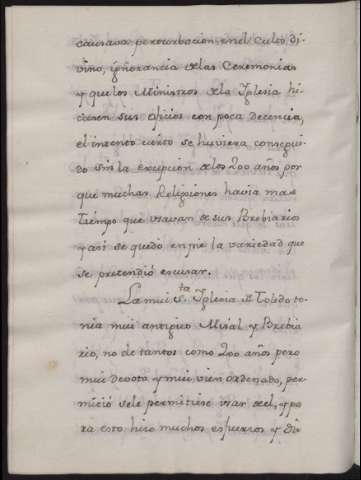 causava perturbacion en el Culto di-
vino, ignorancia de las Ceremonias
y que los Ministros de la Yglesia hi-
ciesen sus oficios con poca decencia,
el intento cierto se huviera consegui-
do sin la excepcion de los 200 años por
que muchas Religiones havia mas
tiempo que usavan de sus Brebiarios
y asi se quedó en pie la variedad que
se pretendió escusar.
La mui S.ta Yglesia de Toledo te-
nia mui antiguo Misal y Brebia
rio, no de tantos como 200 años pero
mui devoto y mui vien ordenado, per-
mitió sele permitiese usar de el, y pa-
ra esto hizo muchos esfuerzos y di-